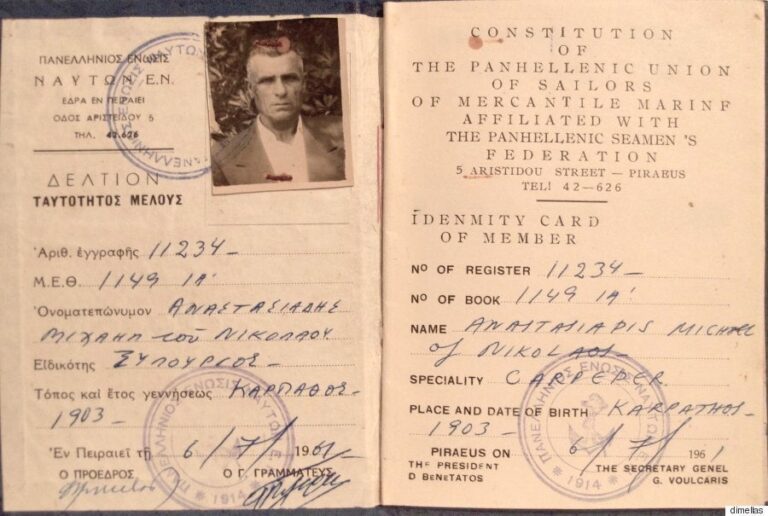 ΠΑΝΕΛΛΗΝΙΟΣ ΕΝΩΣΙΣ
ΝΑΥΤΩΝ Ε.Ν.
ΕΔΡΑ ΕΝ ΠΕΙΡΑΙΕΙ
ΟΔΟΣ ΑΡΙΣΤΕΙΔΟΥ 5
ΤΗΛ. 42.626
ΔΕΛΤΙΟΝ
ΤΑΥΤΟΤΗΤΟΣ ΜΕΛΟΥΣ
Ἀριθ. ἐγγραφῆς 11234
Μ.Ε.Θ. 1149 ΙΑ'
Ὀνοματεπώνυμον ΑΝΑΣΤΑΣΙΑΔΗΣ
ΜΙΧΑΗΛ τοῦ ΝΙΚΟΛΑΟΥ
Εἰδικότης ΞΥΛΟΥΡΓΟΣ
Τόπος καὶ ἔτος γεννήσεως ΚΑΡΠΑΘΟΣ
1903
Ἐν Πειραιεῖ τῇ 6/7/1961
Ο ΠΡΟΕΔΡΟΣ Ο Γ. ΓΡΑΜΜΑΤΕΥΣ
ΠΑΝΕΛΛΗΝΙΟΣ ΕΝΩΣΙΣ ΝΑΥΤΩΝ Ε.
1914
CONSTITUTION
OF
THE PANHELLENIC UNION
OF SAILORS
OF MERCANTILE MARINF
AFFILIATED WITH
THE PANHELLENIC SEAMEN'S
FEDERATION
5 ARISTIDOU STREET — PIRAEUS
TEL! 42—626
IDENMITY CARD
OF MEMBER
Nº OF REGISTER 11234
Nº OF BOOK 1149 ΙΑ'
NAME ANASTASIADIS MICHAEL
of NIKOLAOS
SPECIALITY CARPEDER
PLACE AND DATE OF BIRTH KARPATHOS
1903
PIRAEUS ON 6/7/1961
THE PRESIDENT THE SECRETARY GENEL
D BENETATOS G. VOULCARIS
ΠΑΝΕΛΛΗΝΙΟΣ ΕΝΩΣΙΣ ΝΑΥΤΩΝ Ε.
1914
dimellas